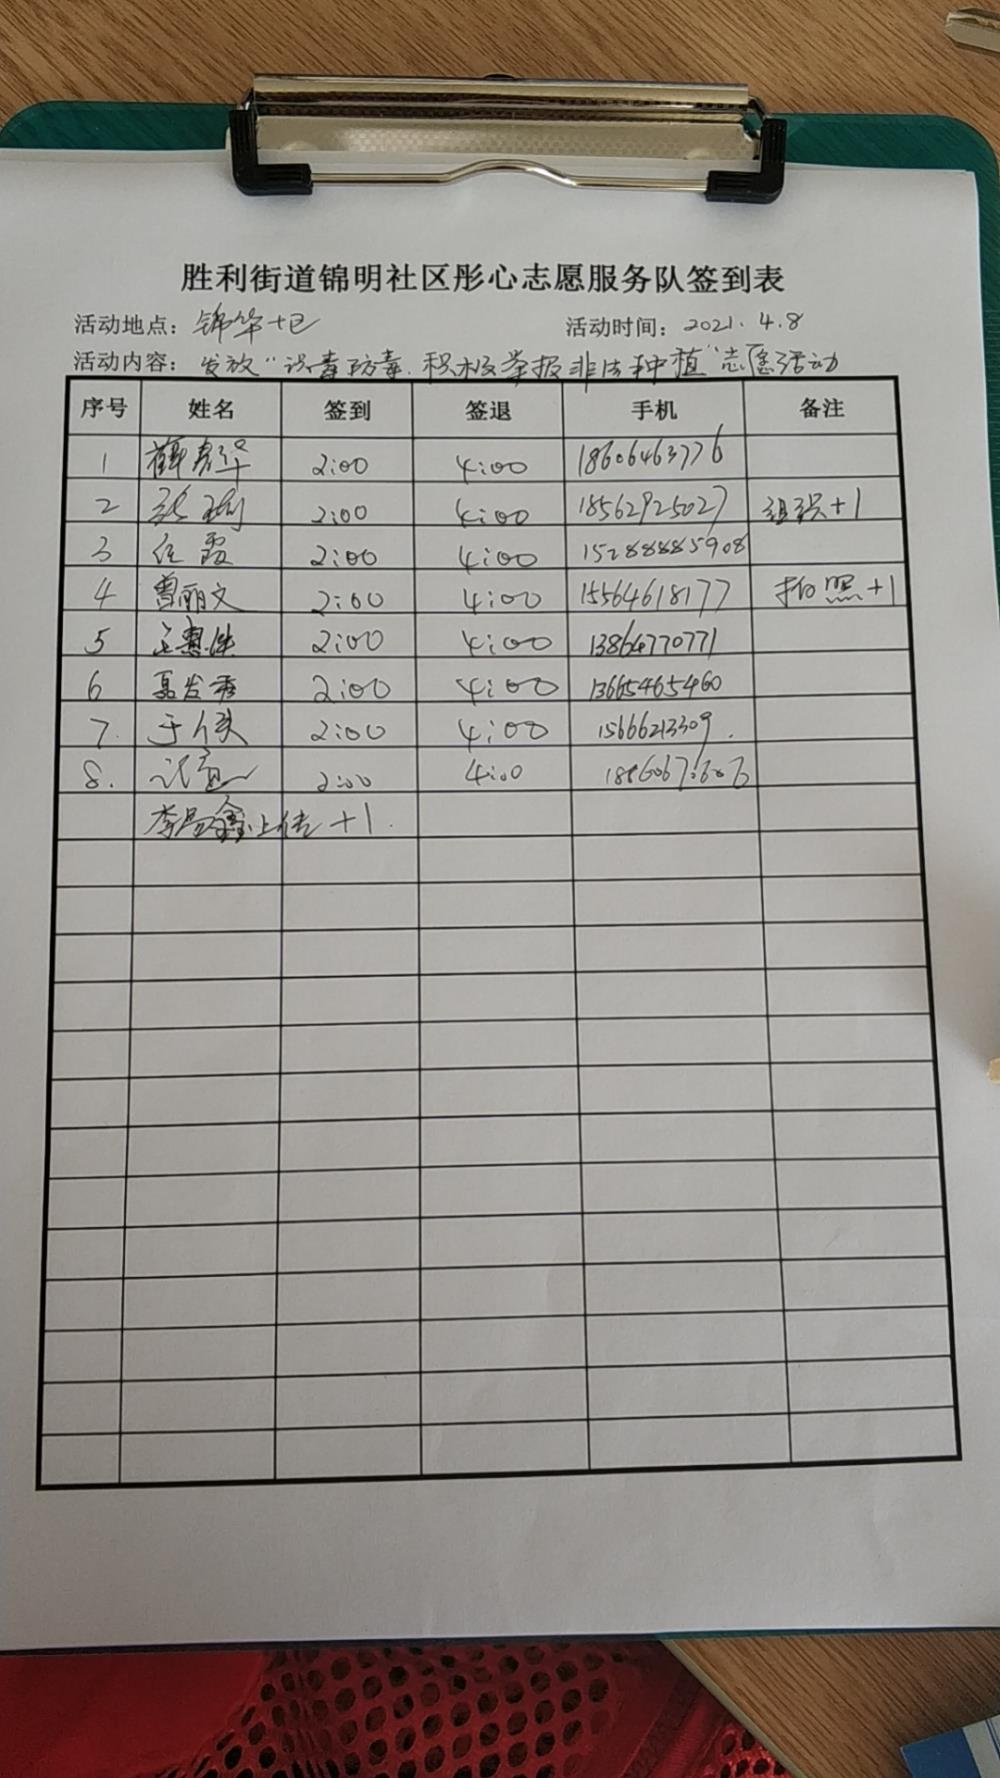 胜利街道锦明社区彤心志愿服务队签到表
活动地点：锦华七区 活动时间：2021.4.8
活动内容：发放"识毒防毒.积极举报非法种植"志愿活动
序号 姓名 签到 签退 手机 备注
1 2:00 4:00 18606463776
2 张 2:00 4:00 18562925027 组织+1
3 任霞 2:00 4:00 15288885908
4 曹丽文 2:00 4:00 15564618177 拍照+1
5 2:00 4:00 13864770771
6 聂发秀 2:00 4:00 13665465460
7. 于 2:00 4:00 15666213309.
8. 2:00 4:00
李昌鑫上传+1.